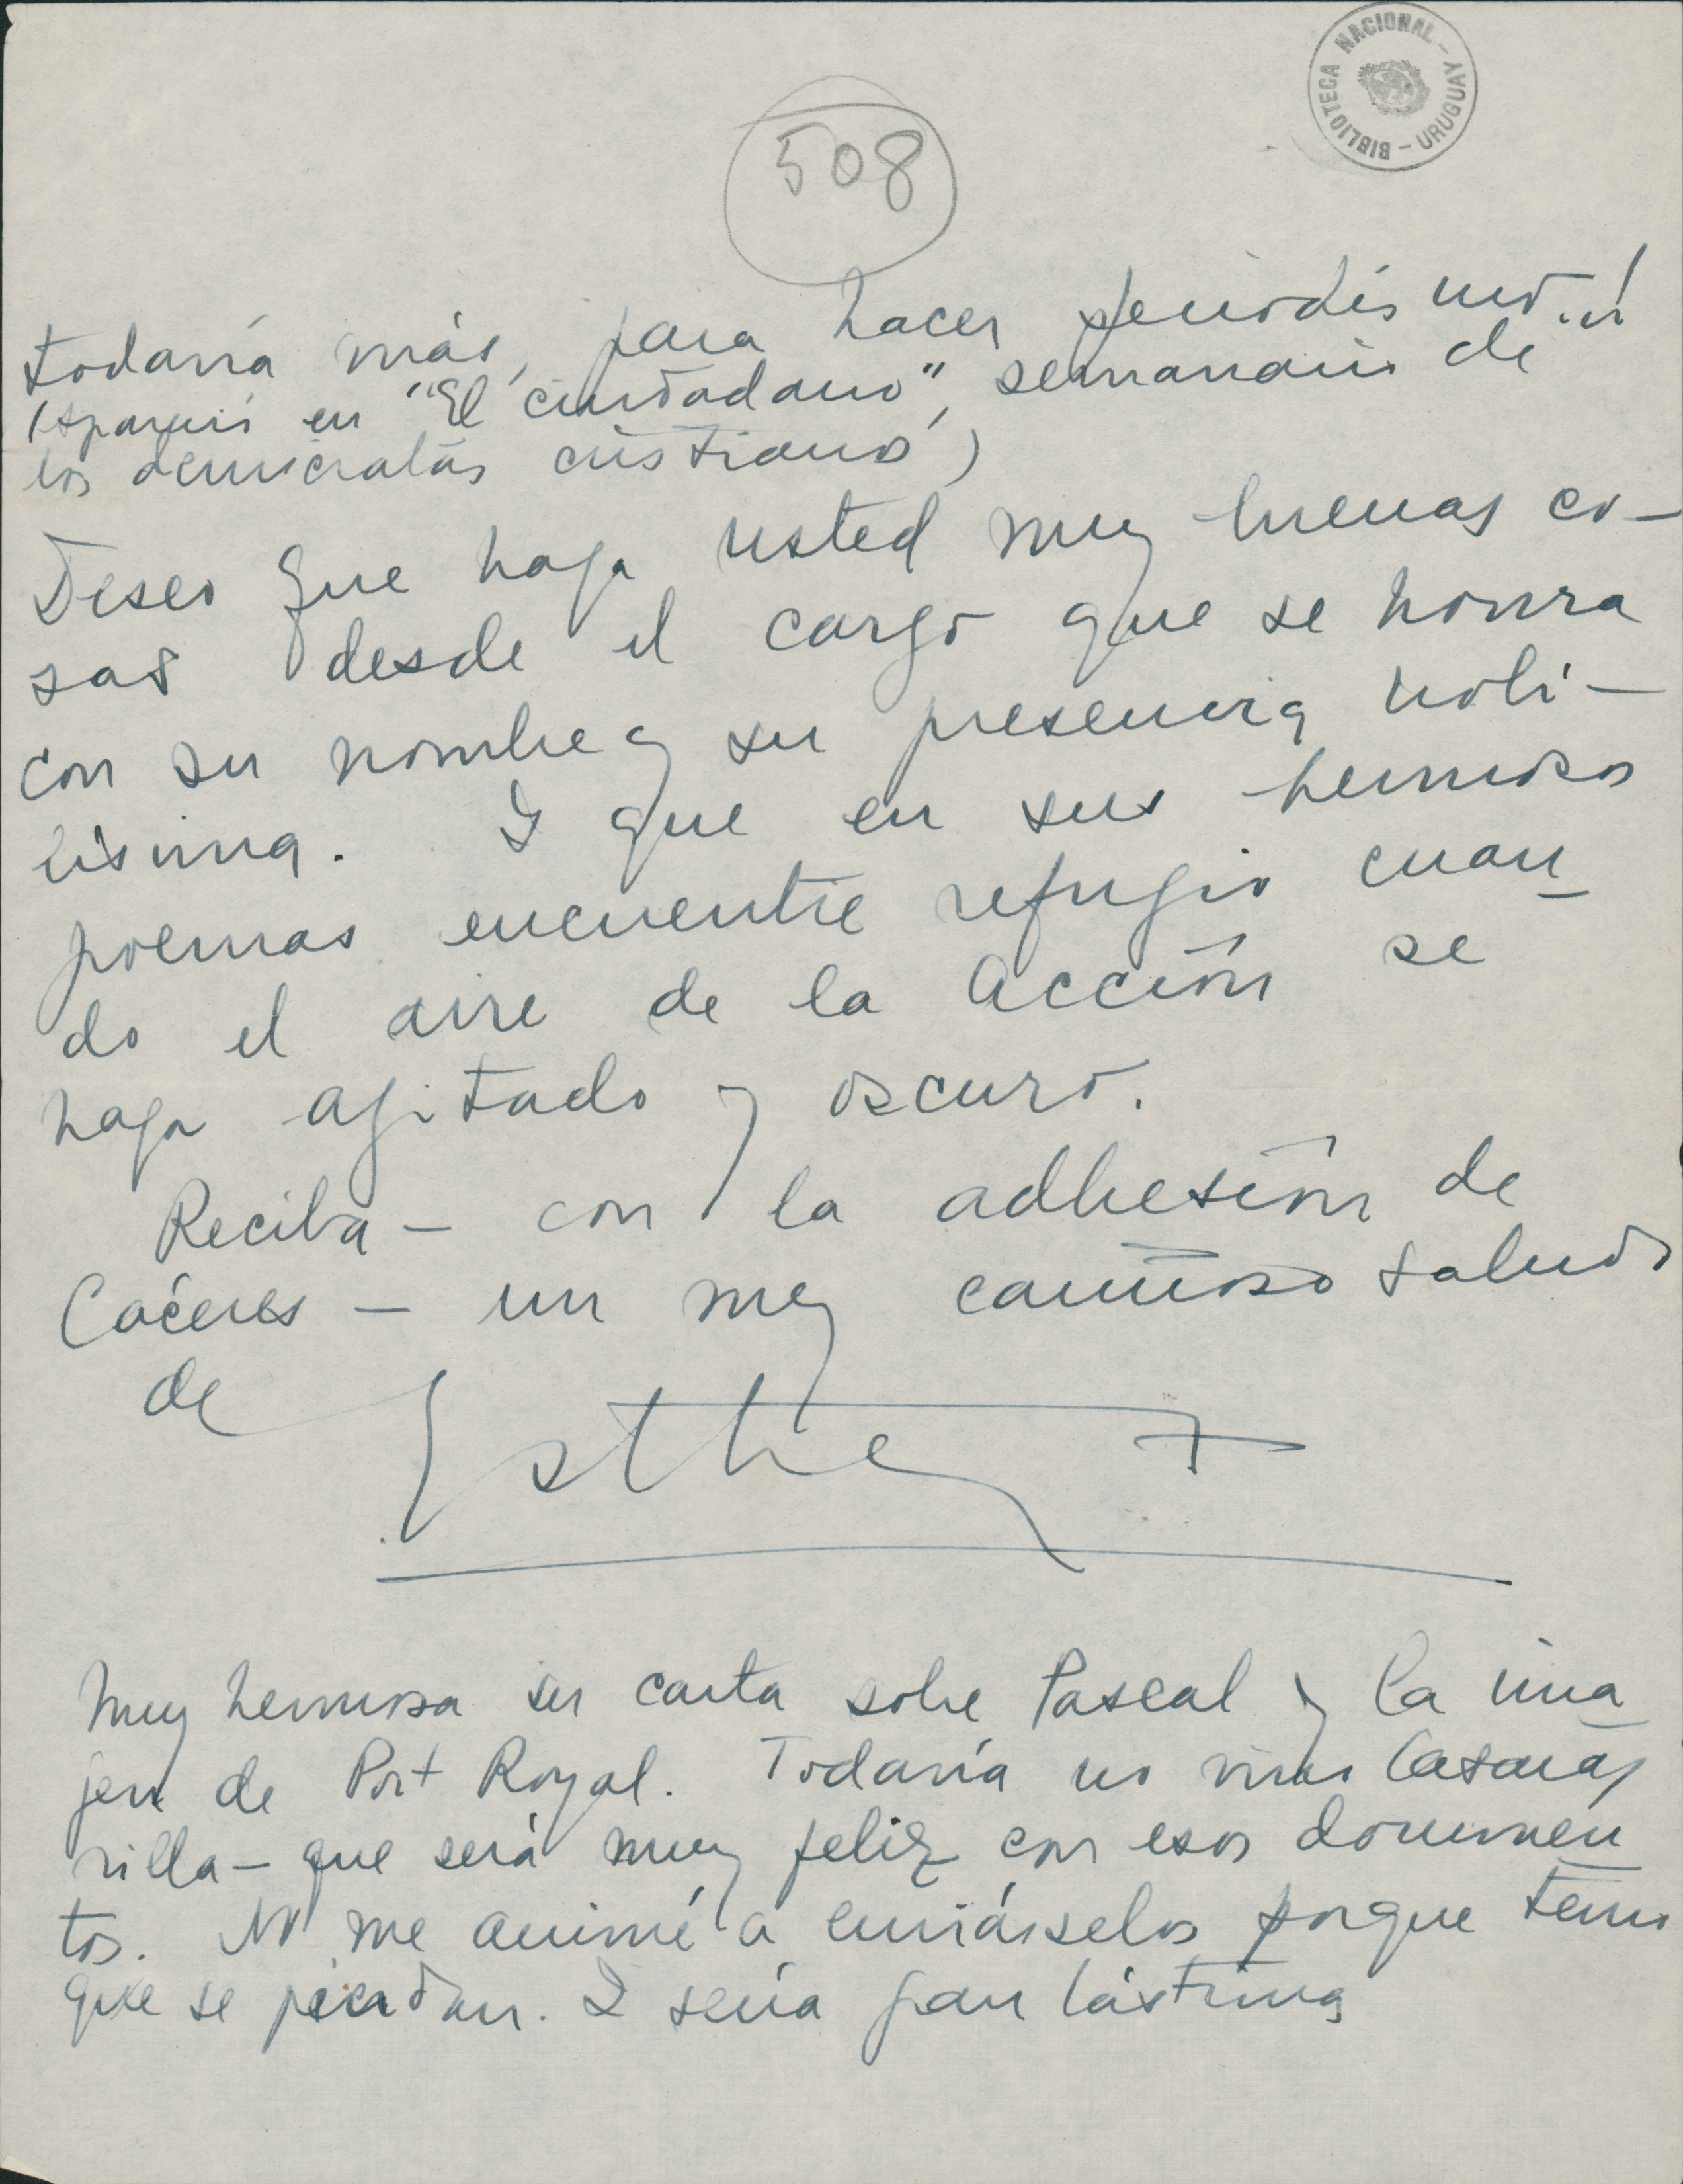 BIBLIOTECA NACIONAL - URUGUAY -
508
todavía más, para hacer periodismo..!
(apareció en "El ciudadano", semanario de
los demócratas cristianos)
Deseo que haga usted muy buenas co-
sas desde el cargo que se honra
con su nombre y su presencia nobi-
lísima. Y que en sus hermosos
poemas encuentre refugio cuan
do el aire de la acción se
haga agitado y oscuro.
Reciba - con la adhesión de
Cáceres - un muy cariñoso saludo
de Esther
Muy hermosa su carta sobre Pascal y la ima
jen de Port Royal. Todavía no vino Casaray
villa - que será muy feliz con esos documen
tos. No me animé a enviárselos porque temo
que se pierdan. Y sería gran lástima